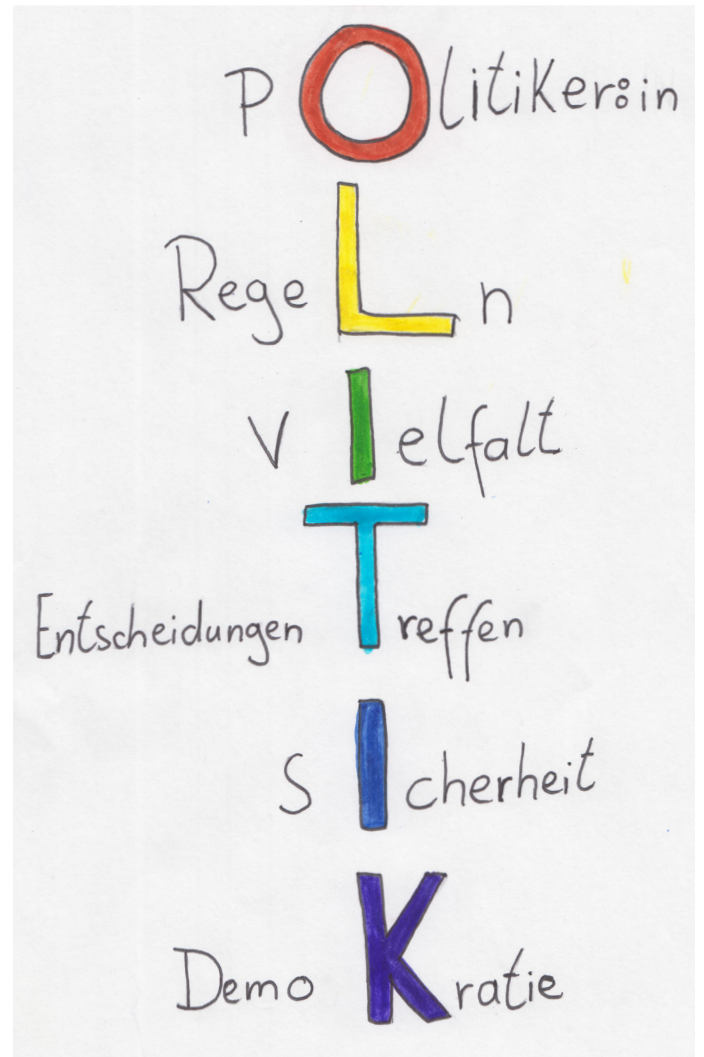 POlitiker:in
RegeLn
VIelfalt
Entscheidungen Treffen
SIcherheit
DemoKratie